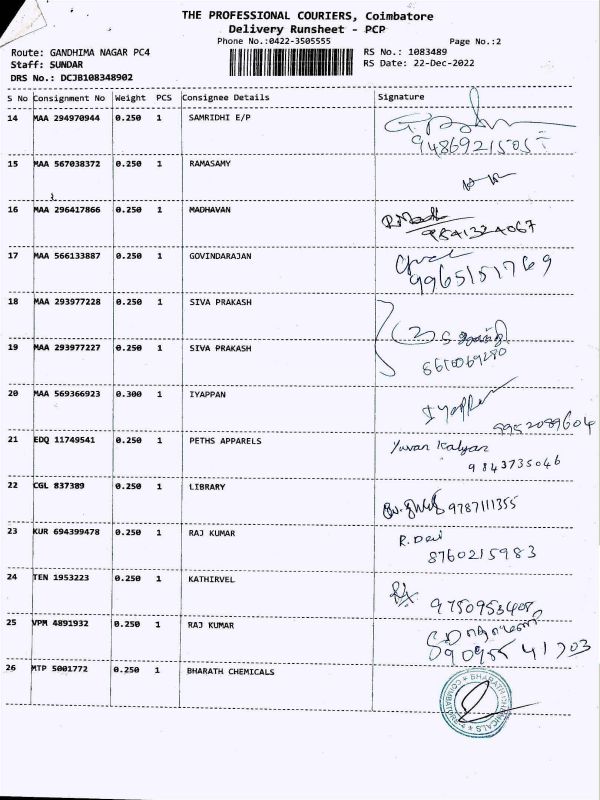 THE PROFESSIONAL COURIERS, Coimbatore
Delivery Runsheet - PCP
Phone No.:0422-3505555
Page No.:2
Route: GANDHIMA NAGAR PC4
RS No.: 1083489
Staff: SUNDAR
RS Date: 22-Dec-2022
DRS No.: DCJB108348902
S No Consignment No Weight PCS Consignee Details Signature
14 MAA 294970944 0.250 1 SAMRIDHI E/P
9486921505
15 MAA 567038372 0.250 1 RAMASAMY
16 MAA 296417866 0.250 1 MADHAVAN
9541324067
17 MAA 566133887 0.250 1 GOVINDARAJAN
9965151769
18 MAA 293977228 0.250 1 SIVA PRAKASH
19 MAA 293977227 0.250 1 SIVA PRAKASH
20 MAA 569366923 0.300 1 IYAPPAN
Iyappan
9952089604
21 EDQ 11749541 0.250 1 PETHS APPARELS
Yuvan Kalyan
9843735046
22 CGL 837389 0.250 1 LIBRARY
9787111355
23 KUR 694399478 0.250 1 RAJ KUMAR
R. Devi
8760215983
24 TEN 1953223 0.250 1 KATHIRVEL
25 VPM 4891932 0.250 1 RAJ KUMAR
26 MTP 5001772 0.250 1 BHARATH CHEMICALS
BHARATH CHEMICALS * COIMBATORE *